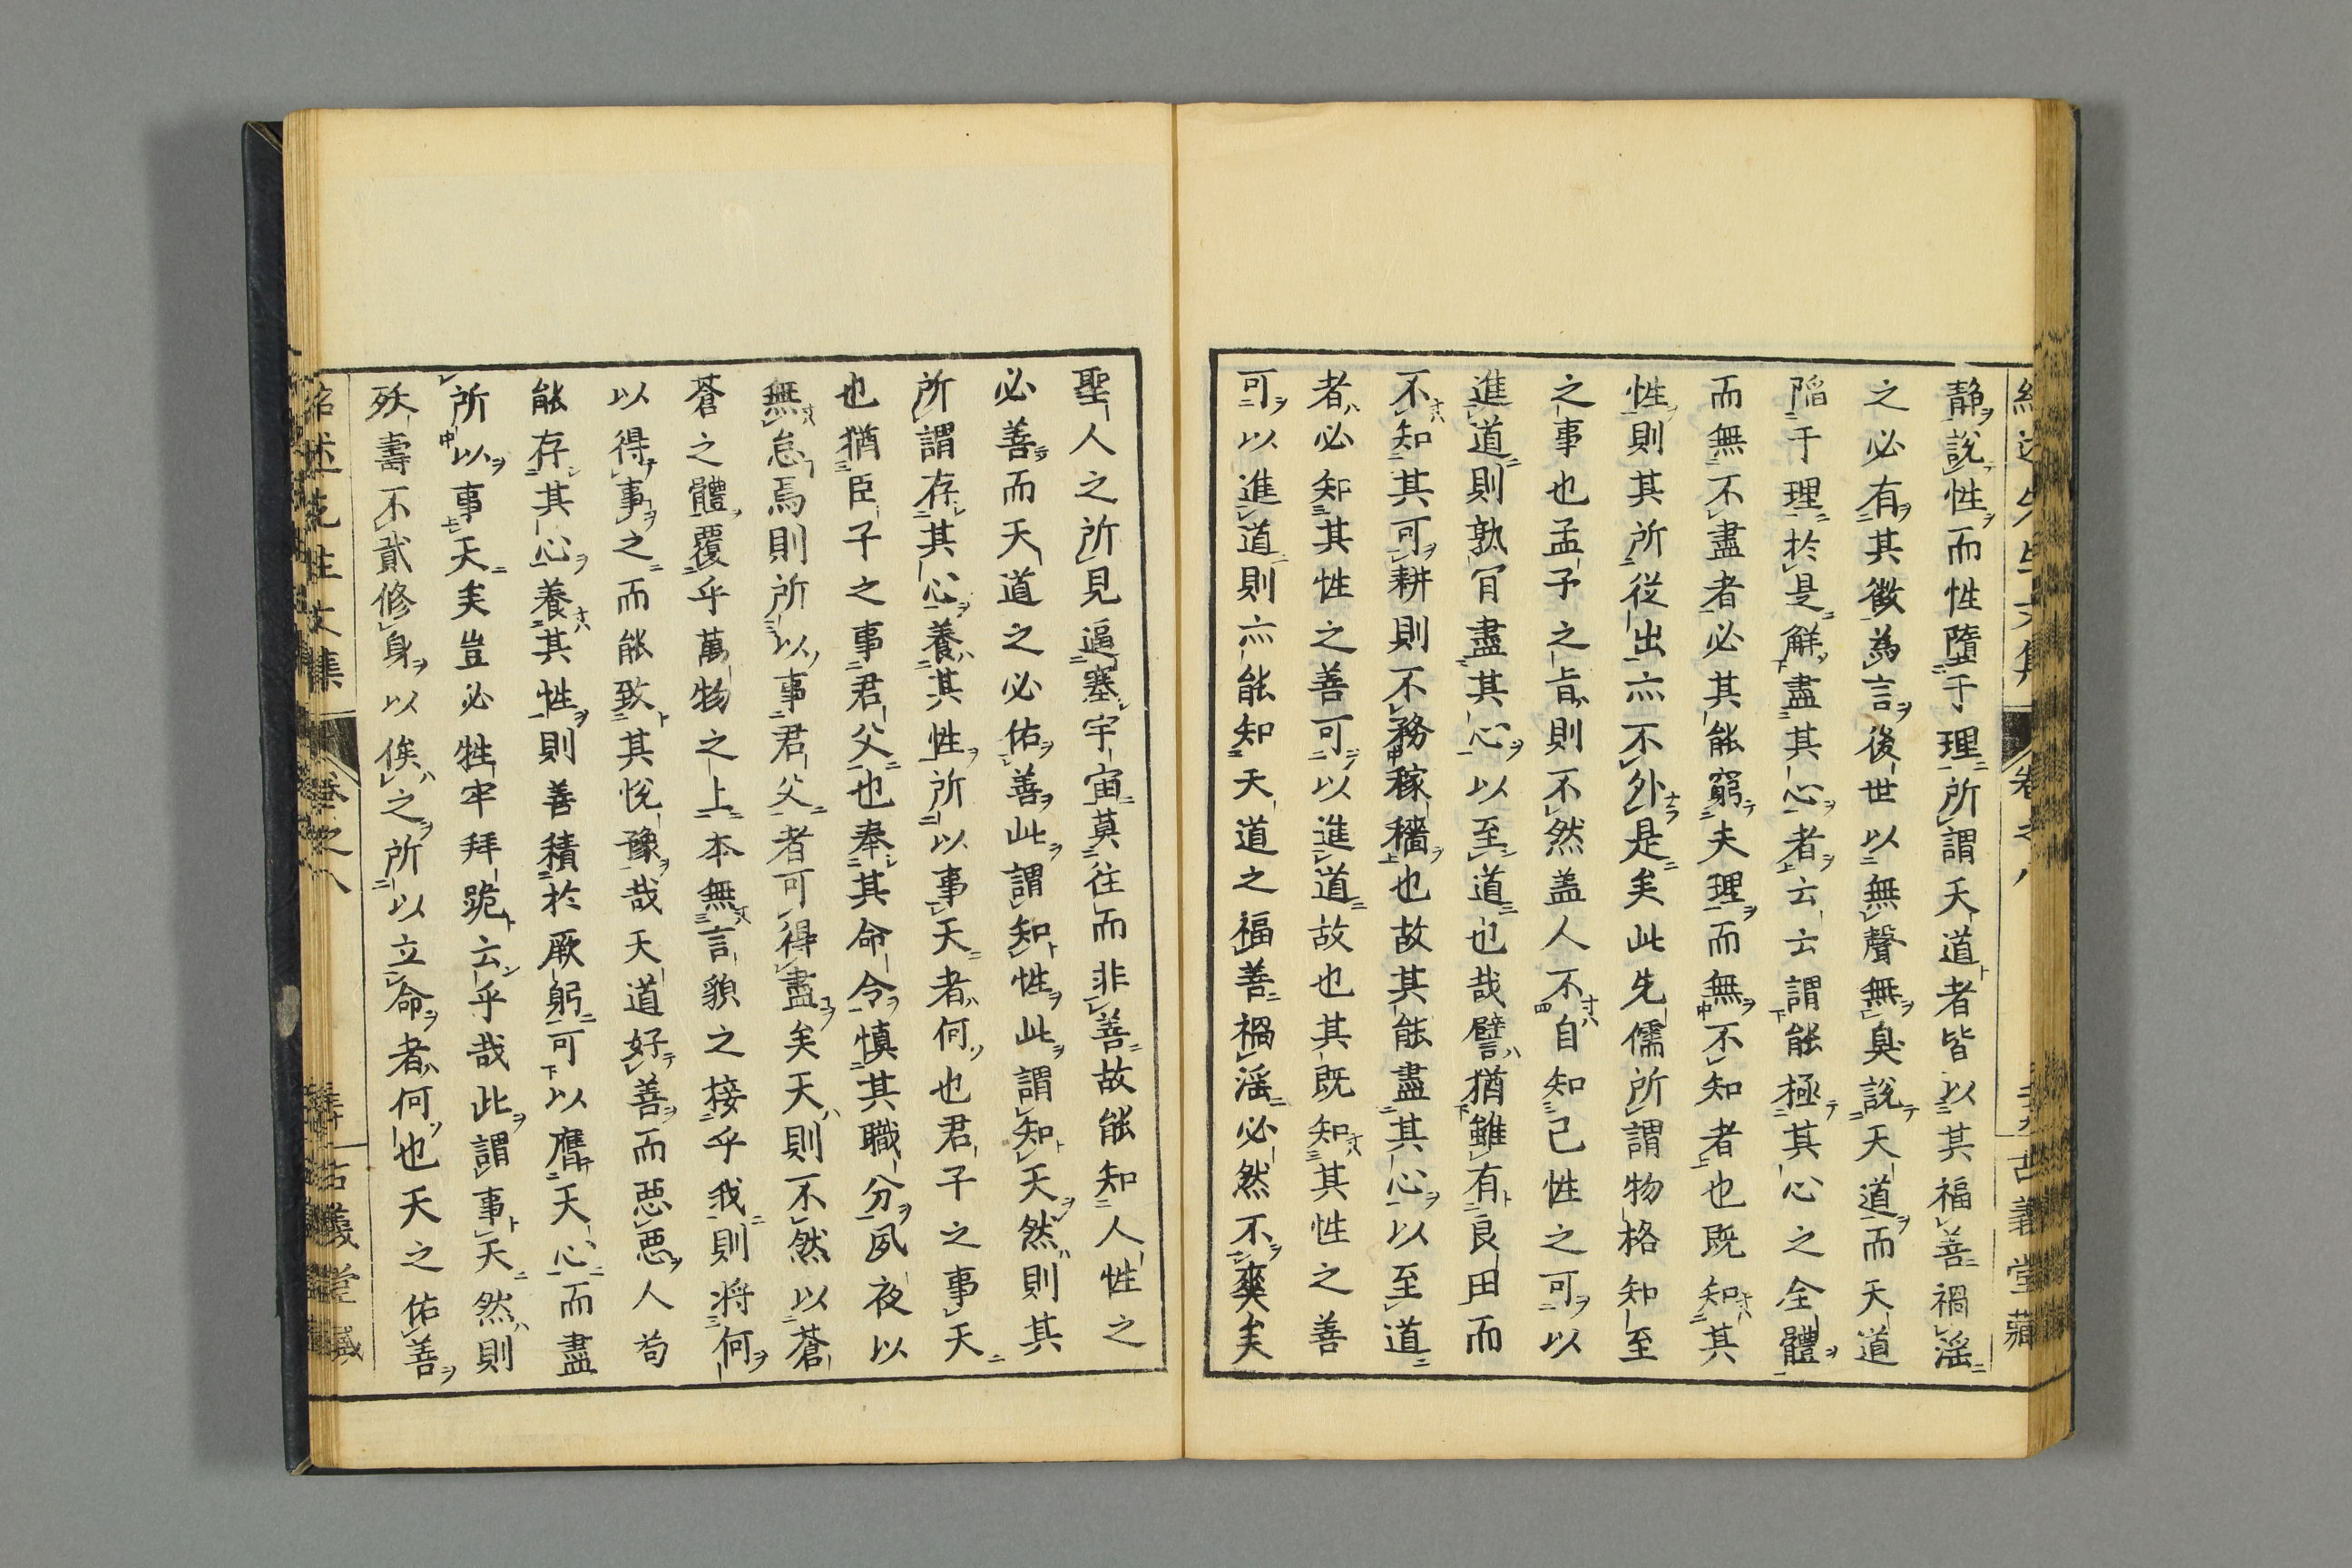 靜說性而性墮于理所謂天道者皆以其福善禍淫
之必有其徵為言後世以無聲無臭說天道而天道
陷于理於是解盡其心者云云謂能極其心之全體
而無不盡者必其能窮夫理而無不知者也既知其
性則其所從出亦不外是矣此先儒所謂物格知至
之事也孟子之旨則不然蓋人不自知己性之可以
進道則孰肯盡其心以至道也哉譬猶雖有良田而
不知其可耕則不務稼穡也故其能盡其心以至道
者必知其性之善可以進道故也其既知其性之善
可以進道則亦能知天道之福善禍淫必然不爽矣
聖人之所見逼塞宇宙莫往而非善故能知人性之
必善而天道之必佑善此謂知性此謂知天然則其
所謂存其心養其性所以事天者何也君子之事天
也猶臣子之事君父也奉其命令慎其職分夙夜以
無怠焉則所以事君父者可得盡矣天則不然以蒼
蒼之體覆乎萬物之上本無言貌之接乎我則將何
以得事之而能致其悅豫哉天道好善而惡惡人苟
能存其心養其性則善積於厥躬可以膺天心而盡
所以事天矣豈必牲牢拜跪云乎哉此謂事天然則
殀壽不貳修身以俟之所以立命者何也天之佑善
紹述先生文集 卷之八 古義堂藏